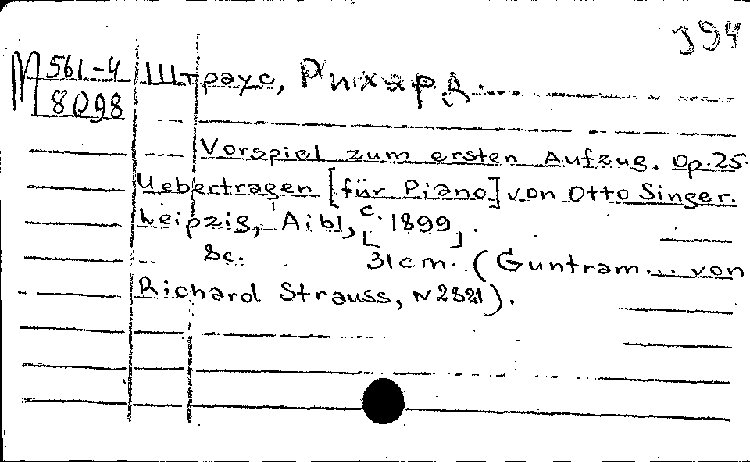 394
М 561-4
8098
Штраус, Рихард.
Vorspiel zum ersten Aufzug. Op. 25.
Uebertragen [für Piano] von Otto Singer.
Leipzig, Aibl, [c. 1899].
8c. 31cm. (Guntram... von
Richard Strauss, N 2821).